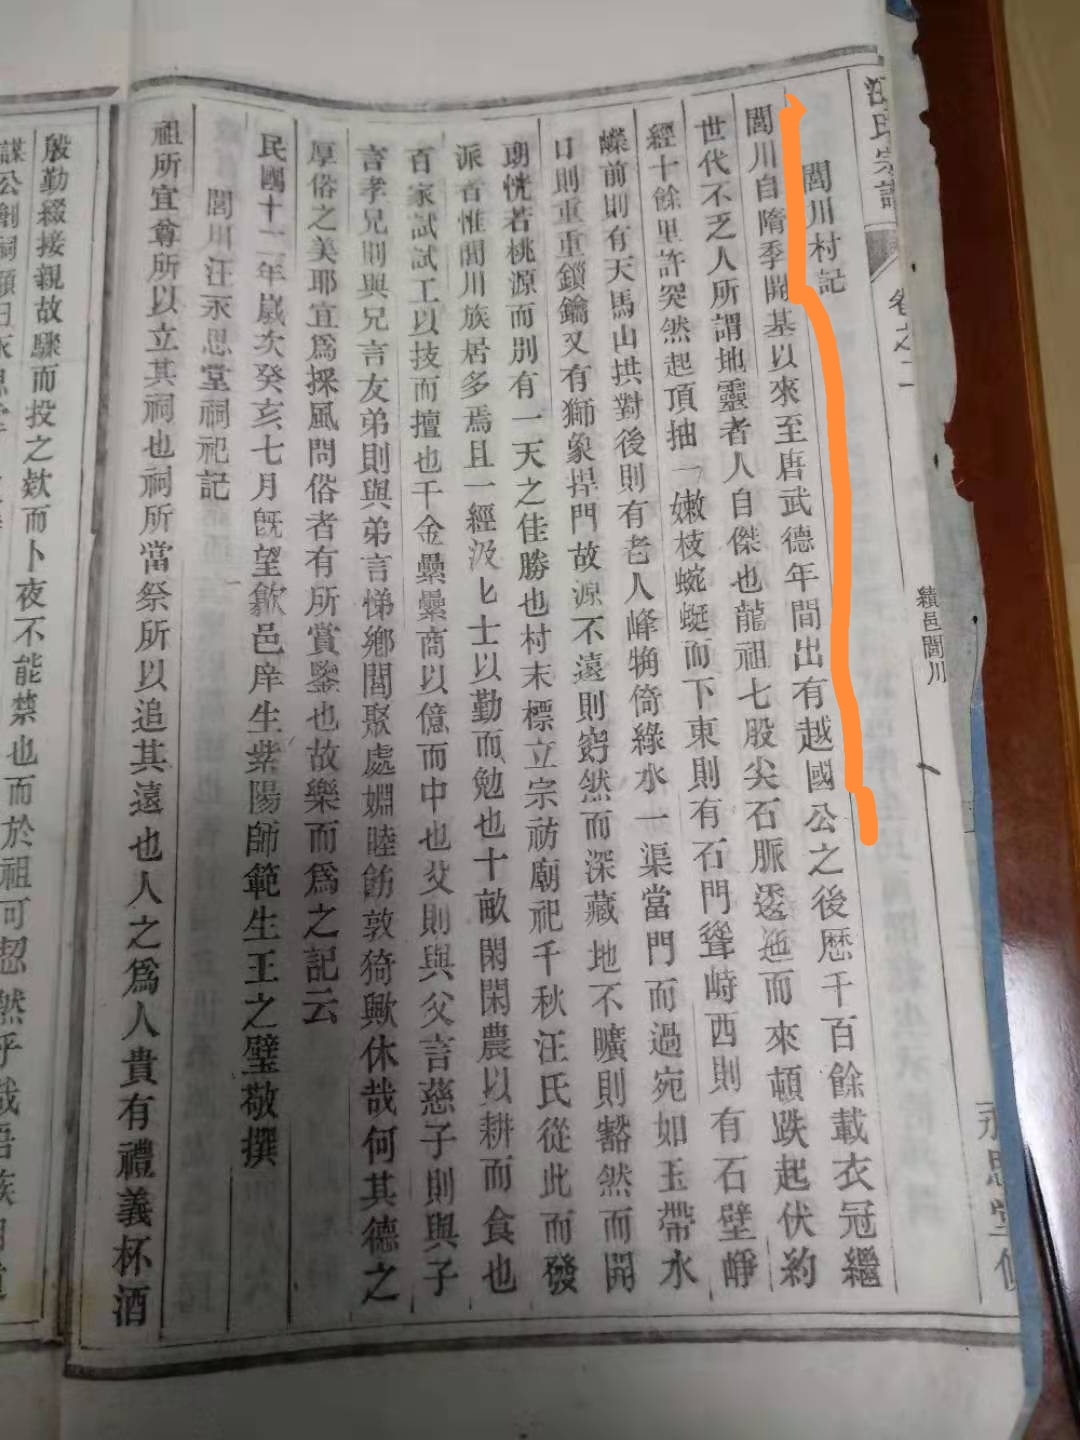 汪氏宗譜 卷之二 績邑閭川 永思堂修
閭川村記
閭川自隋季開基以來至唐武德年間出有越國公之後歷千百餘載衣冠繼
世代不乏人所謂地靈者人自傑也龍祖七股尖石脈透迤而來頓跌起伏約
經十餘里許突然起頂抽一嫩枝蜿蜒而下東則有石門聳峙西則有石壁崢
嶸前則有天馬山拱對後則有老人峰犄倚綠水一渠當門而過宛如玉帶水
口則重重鎖鑰又有獅象捍門故源不遠則窈然而深藏地不曠則豁然而開
朗恍若桃源而別有一天之佳勝也村末標立宗祊廟祀千秋汪氏從此而發
派者惟閭川族居多焉且一經汲匕士以勤而勉也十畝閑閑農以耕而食也
百家試試工以技而擅也千金纍纍商以億而中也父則與父言慈子則與子
言孝兄則與兄言友弟則與弟言悌鄉閭聚處婣睦飭敦猗歟休哉何其德之
厚俗之美耶宜爲採風問俗者有所賞鑒也故樂而爲之記云
民國十二年歲次癸亥七月既望歙邑庠生紫陽師範生王之璧敬撰
閭川汪永思堂祠祀記
祖所宜尊所以立其祠也祠所當祭所以追其遠也人之爲人貴有禮義杯酒
殷勤綴接親故驟而投之歘而卜夜不能禁也而於祖可恝然乎哉吾族
謀公創祠顏曰永思堂